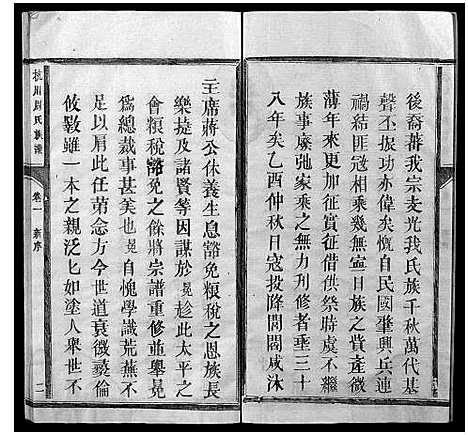 後裔蕃我宗支光我氏族千秋萬代基
聲丕振功亦偉矣慨自民國肇興兵連
禍結匪寇相乘幾無寧日族之貲產微
薄年來更加征實征借供祭時虞不周
族事廢弛家乘之無力刊修者垂三十
八年矣乙酉仲秋日寇投降閭閻咸沐
主席蔣公休養生息豁免粮稅之恩族長
樂捷及諸賢等因謀於晃趁此太平之
會粮稅豁免之餘將宗譜重修並舉晃
為總裁事甚美也晃自愧學識荒蕪不
足以肩此任第念方今世道衰微彛倫
攸斁雖一本之親泛七如塗人舉世不
杭川周氏族譜
卷一 新序
二